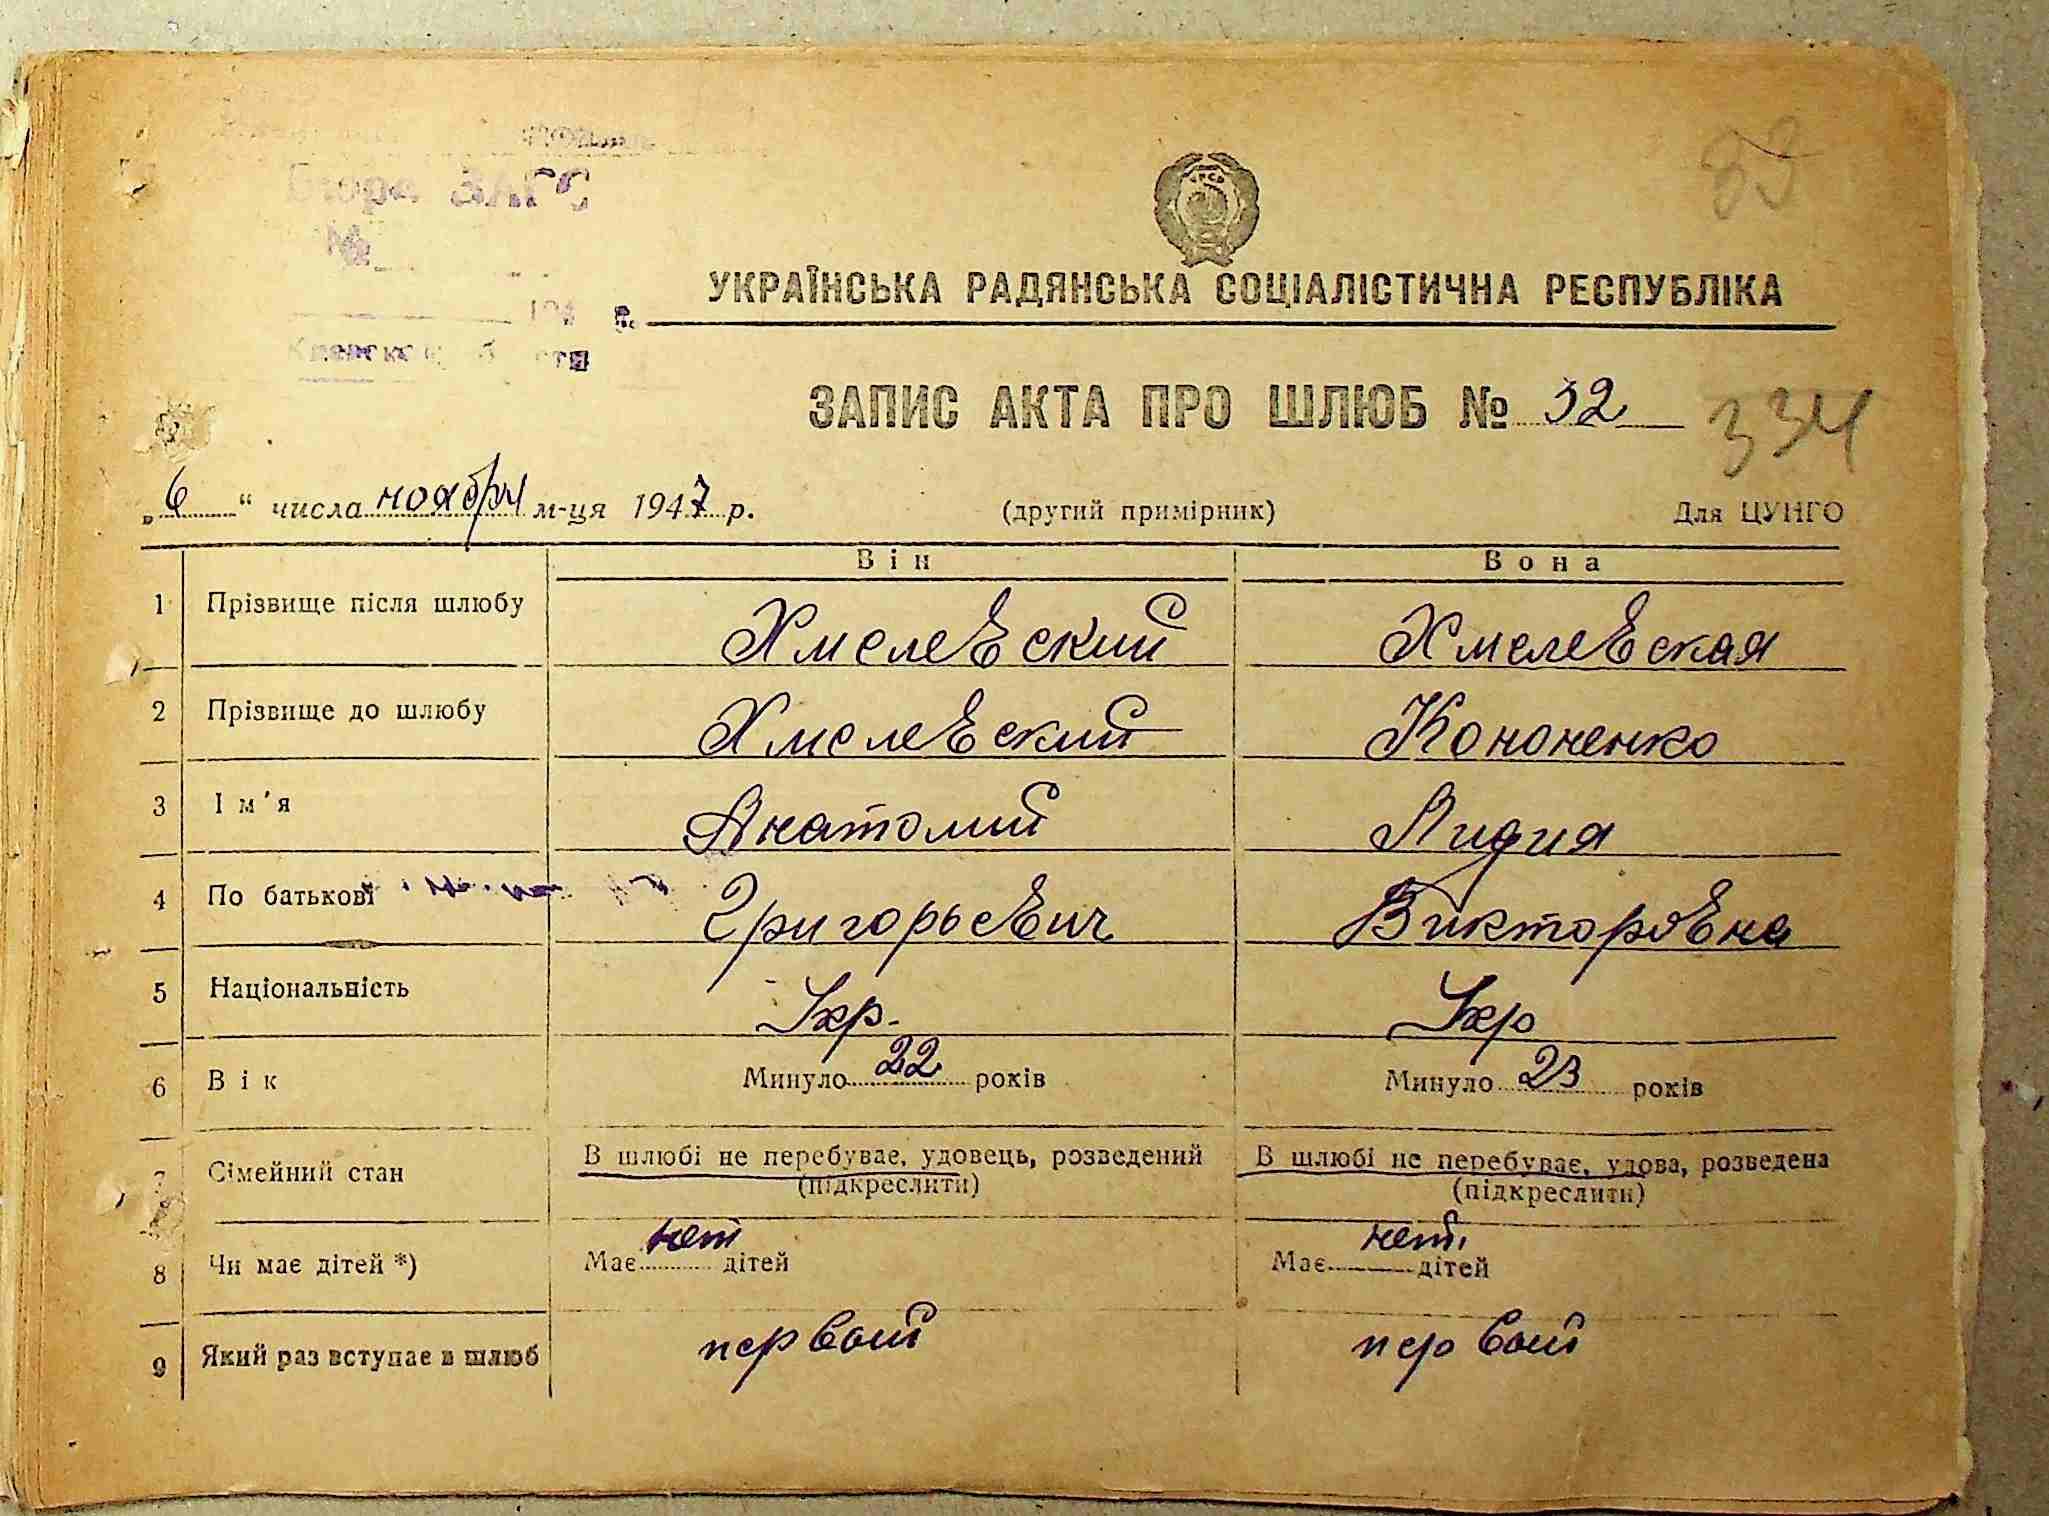 Бюро ЗАГС
№
194 г.
Киевской области
83
УКРАЇНСЬКА РАДЯНСЬКА СОЦІАЛІСТИЧНА РЕСПУБЛІКА
ЗАПИС АКТА ПРО ШЛЮБ № 32
334
„6“ числа ноября м-ця 1947 р. (другий примірник) Для ЦУНГО
Він Вона
1 Прізвище після шлюбу Хмелевский Хмелевская
2 Прізвище до шлюбу Хмелевский Кононенко
3 Ім'я Анатолий Лидия
4 По батькові Григорьевич Викторовна
5 Національність Укр. Укр
6 Вік Минуло 22 років Минуло 23 років
7 Сімейний стан В шлюбі не перебуває, удовець, розведений В шлюбі не перебуває, удова, розведена
(підкреслити) (підкреслити)
8 Чи має дітей *) Має нет дітей Має нет. дітей
9 Який раз вступає в шлюб первый первый